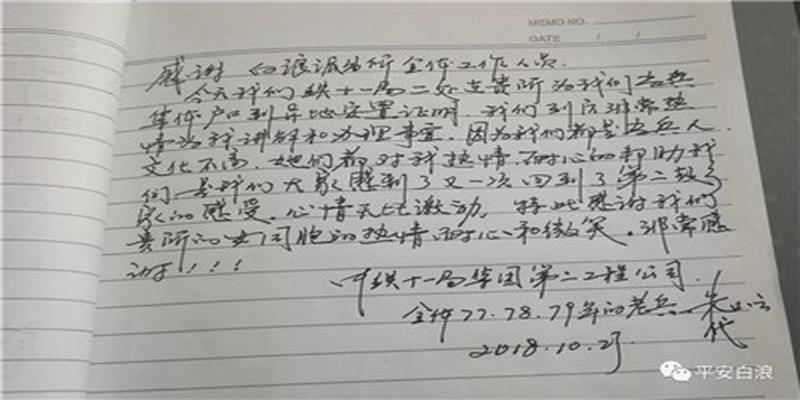 MEMO NO.
DATE / /
感谢白浪派出所全体工作人员.
今天我们铁十一局二处在贵所为我们当兵
集体户口到异地安置证明，我们到后非常热
情为我讲解和办理事宜，因为我们都是当兵人
文化不高，她们都对我热情耐心的帮助我
们，是我们大家感到了又一次回到了第二故
家的感受，心情无比激动，特此感谢我们
贵所的女同胞的热情耐心和微笑。非常感
谢！！！
中铁十一局集团第二工程公司.
全体77.78.79年的老兵 朱
代
2018.10.27
平安白浪